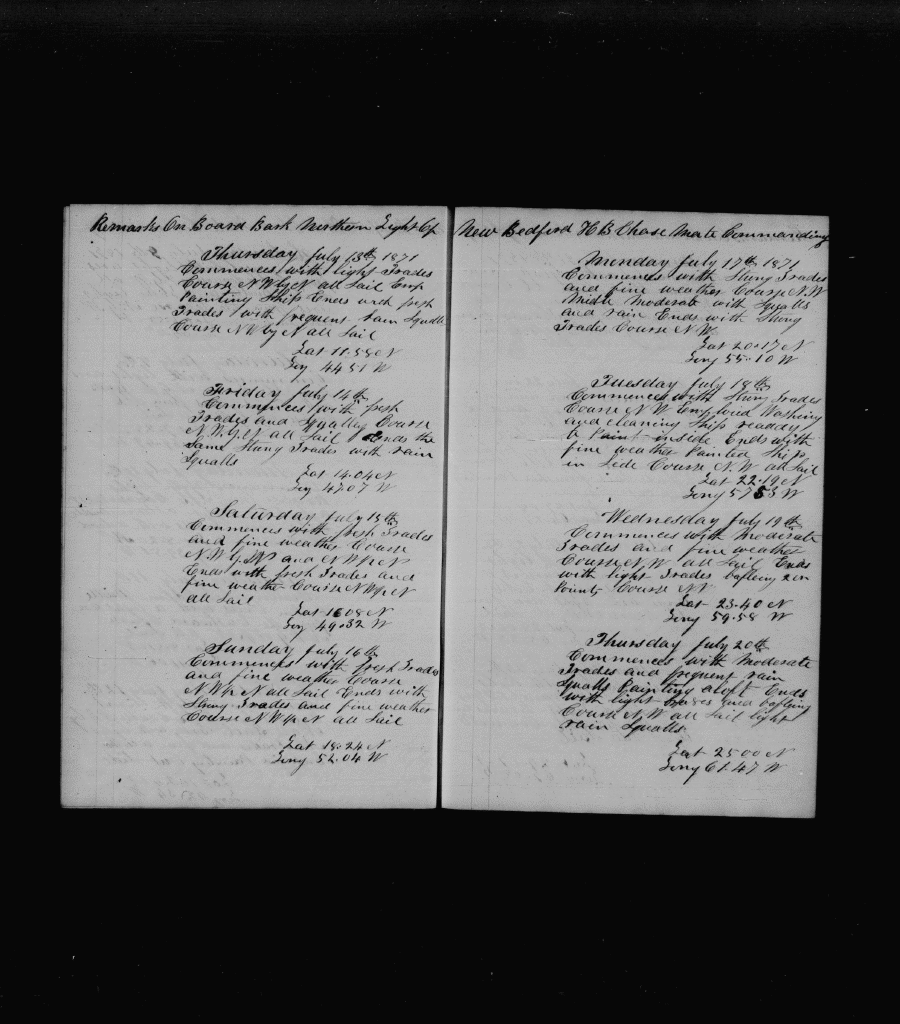 Remarks On Board Bark Northern Light Of
Thursday July 13th 1871
Commences with light Trades
Course N W by N all Sail Emp
Painting Ship Ends with fresh
Trades with frequent rain Squalls
Course N W by N all Sail
Lat 11.58 N
Long 44 51 W
Friday July 14th
Commences with fresh
Trades and Squally Course
N.W.by.N all Sail Ends the
Same Strong Trades with rain
Squalls
Lat 14.04 N
Long 47.07 W
Saturday July 15th
Commences with fresh Trades
and fine weather Course
N.W. by N and N W by N
Ends with fresh Trades and
fine weather Course N W by N
all Sail
Lat 16 08 N
Long 49.32 W
Sunday July 16th
Commences with fresh Trades
and fine weather Course
N W by N all Sail Ends with
Strong Trades and fine weather
Course N W by N all Sail
Lat 18.24 N
Long 52.04 W
New Bedford H B Chase Mate Commanding
Monday July 17th 1871
Commences with Strong Trades
and fine weather Course N.W
Middle Moderate with Squalls
and rain Ends with Strong
Trades Course N W
Lat 20.17 N
Long 55.10 W
Tuesday July 18th
Commences with Strong Trades
Course N W Employed Washing
and cleaning Ship readdy
to Paint inside Ends with
fine weather Painted Ship
in Side Course N.W all Sail
Lat 22.19 N
Long 57 53 W
Wednesday July 19th
Commences with Moderate
Trades and fine weather
Course N W all Sail Ends
with light Trades bafling 2 or
Points Course N W
Lat 23.40 N
Long 59.58 W
Thursday July 20th
Commences with Moderate
Trades and frequent rain
Squalls Painting aloft Ends
with light Trades and bafling
Course N W all Sail light
rain Squalls
Lat 25 00 N
Long 61.47 W